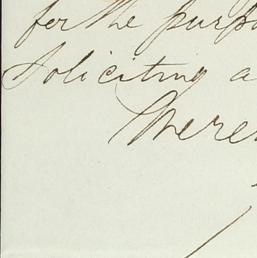 for the purpo
Soliciting a
Where